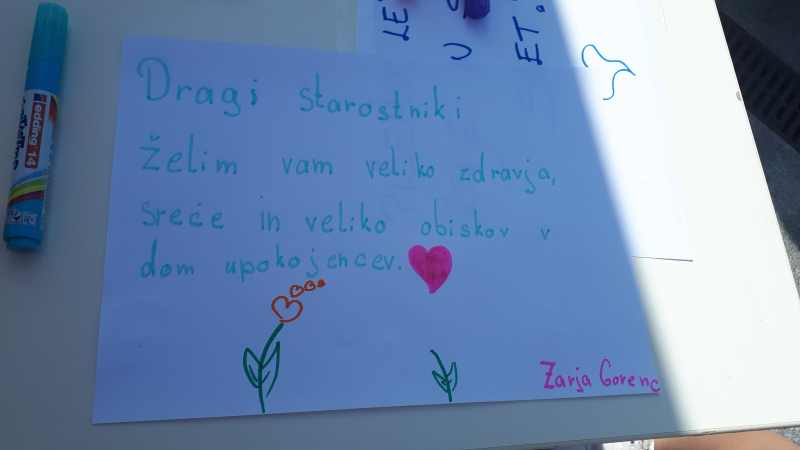 Dragi starostniki
Želim vam veliko zdravja,
sreče in veliko obiskov v
dom upokojencev.
Zarja Gorenc
edding 14
LE
U
ET.